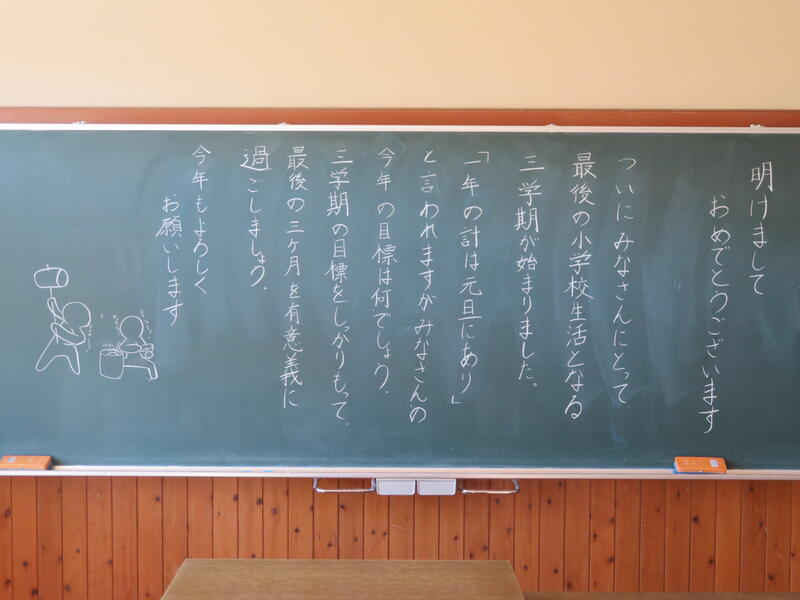 明けまして
おめでとうございます
ついにみなさんにとって、
最後の小学校生活となる
三学期が始まりました。
「一年の計は元旦にあり」
と言われますが、みなさんの
今年の目標は何でしょう。
三学期の目標をしっかりもって、
最後の三ヶ月を有意義に
過ごしましょう。
今年もよろしく
お願いします